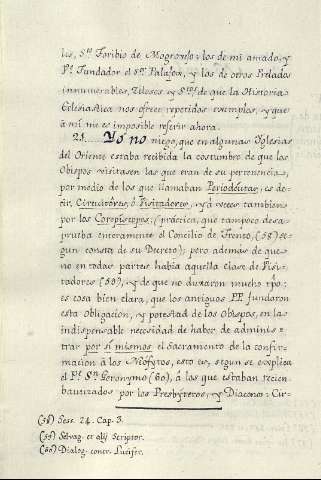 les, Sto. Toribio de Mogrovejo: los de mi amado, y
Ve. Fundador el Sor. Palafox, y los de otros Prelados
innumerables, Zelosos y Stos. de que la Historia
Eclesiastica nos ofrece repetidos exemplos, y que
à mi me es imposible referir ahora.
21.......Yo no niego, que en algunas Iglesias
del Oriente estaba recibida la costumbre de que los
Obispos visitasen las que eran de su pertenencia,
por medio de los que llamaban Periodeutas; es de-
cir, Circuitòres, ò Visitadores, y à veces tambien
por los Corepíscopos; (práctica, que tampoco desa-
prueba enteramente el Concilio de Trento, (58) se-
gun consta de su Decreto); pero además de que
no en todas partes habia aquella clase de Visi-
tadores (59), y de que no duraron mucho tpo;
es cosa bien clara, que los antiguos PP. fundaron
esta obligacion, y potestad de los Obispos, en la
indispensable necesidad de haber de adminis-
trar por sí mismos el Sacramento de la confir-
macion à los Neofytos, esto es, segun se explica
el Pe. Sn. Geronymo (60), à los que estaban recien
bautizados por los Presbyteros, y Diaconos: Cir-
(58) Sess. 24. Cap. 3.
(59) Selvag. et alij Scriptor.
(60) Dialog. contr. Lucifer.